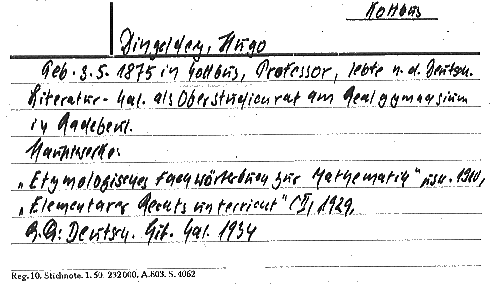 Kottbus
Dingeldey, Hugo
Geb. 3. 5. 1875 in Cottbus, Professor, lebte n. d. Deutsch.
Literatur-Kal. als Oberstudienrat am Realgymnasium
in Radebeul.
Hauptwerke:
„Etymologisches Fachwörterbuch zur Mathematik" 1910,
„Elementarer Rechtsunterricht" (II, 1929,
Deutsch. Lit. Kal. 1934
Reg. 10. Stichnote. 1. 50. 232000. A. 803. S. 4062